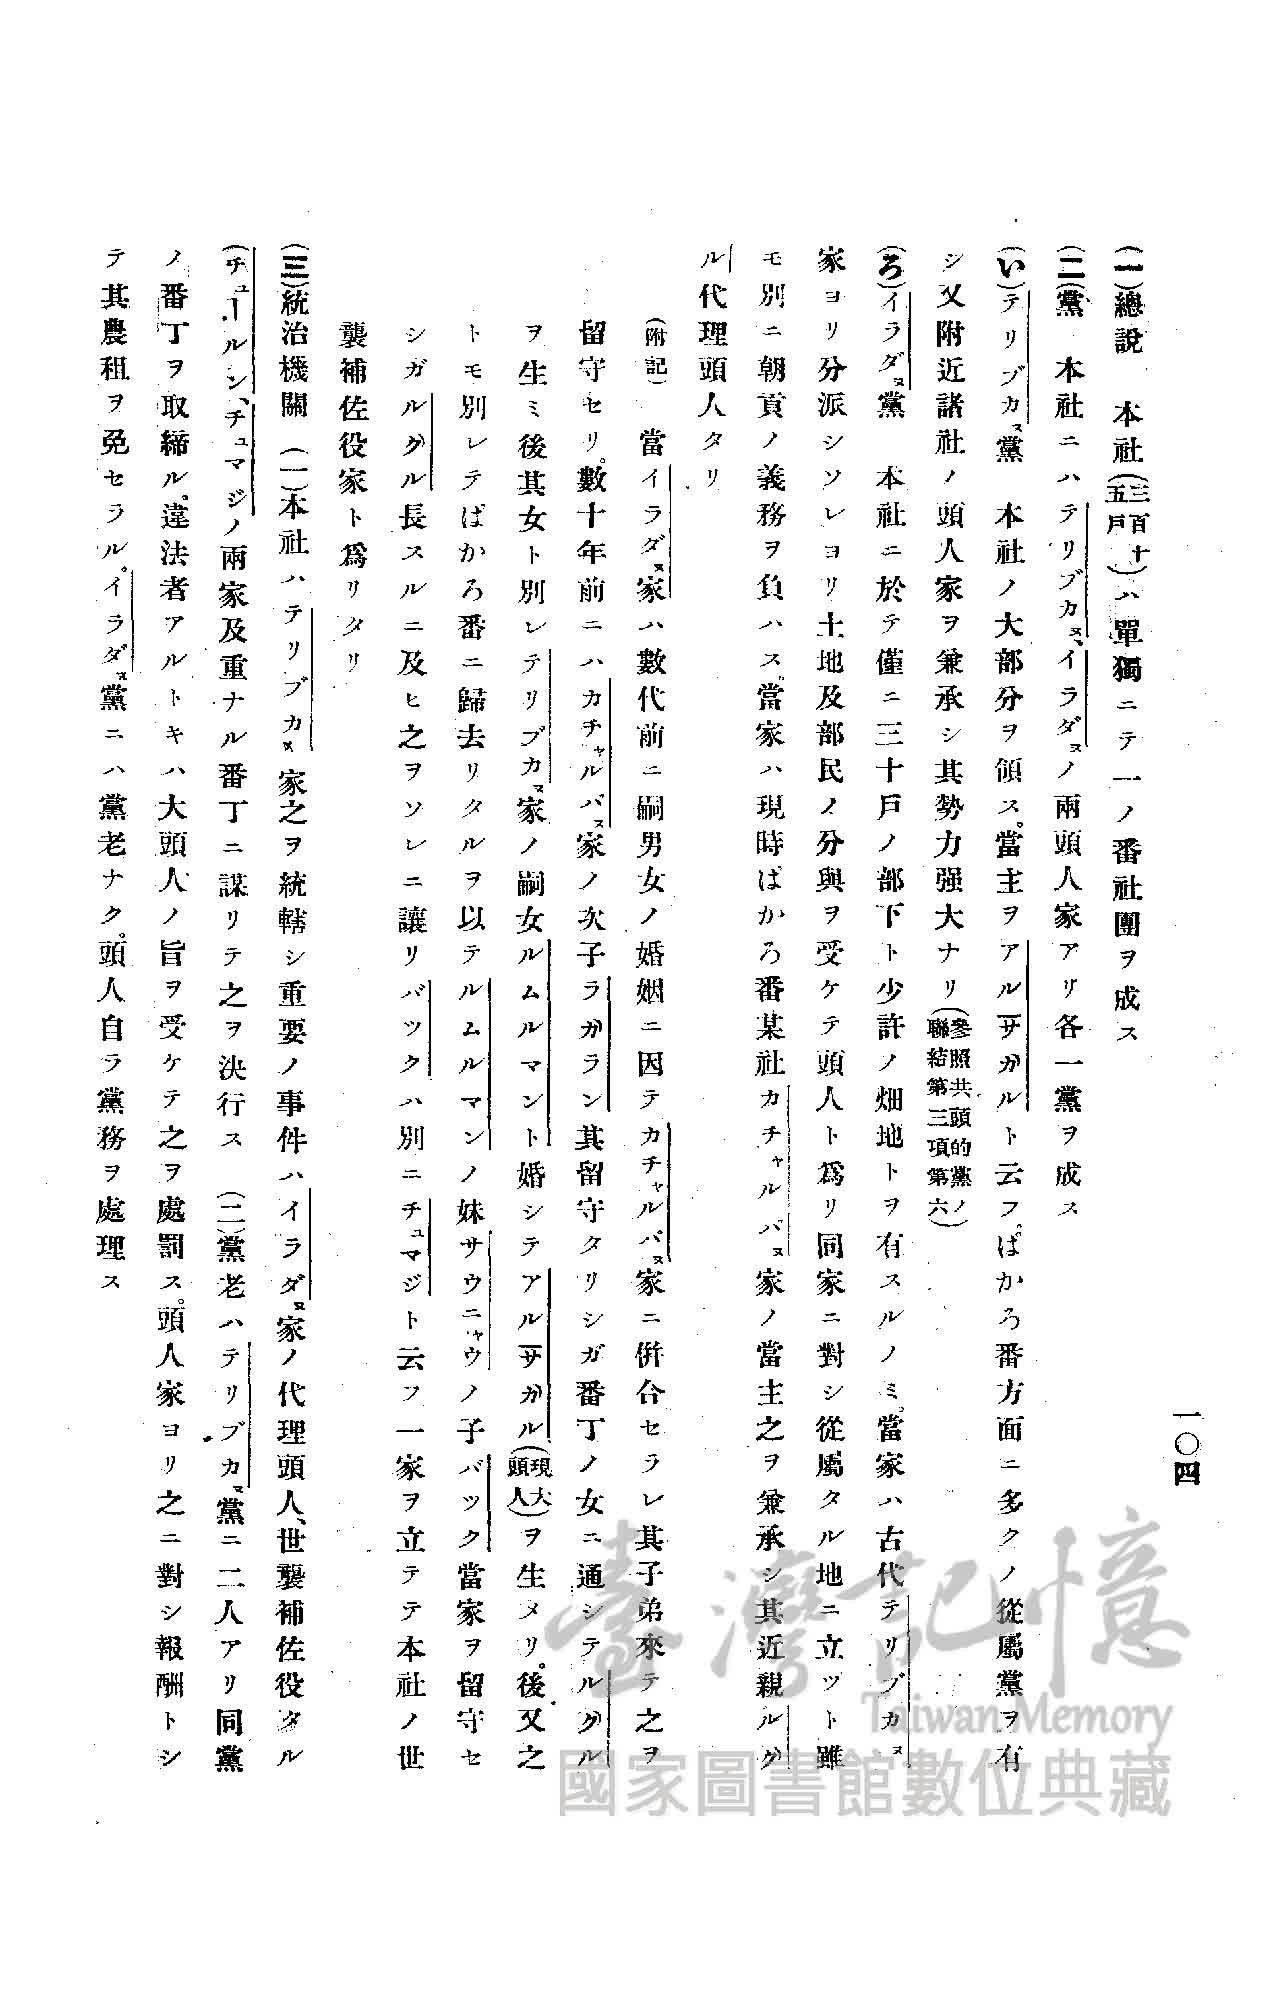 一〇四
(一)總說　本社(三百十五戶)ハ單獨ニテ一ノ番社團ヲ成ス
(二)黨　本社ニハテリブカヌ、イラダヌノ兩頭人家アリ各一黨ヲ成ス
(い)テリブカヌ黨　本社ノ大部分ヲ領ス。當主ヲアルサガルト云フ。ぱかろ番方面ニ多クノ從屬黨ヲ有
シ又附近諸社ノ頭人家ヲ兼承シ其勢力强大ナリ(參照共頭的黨ノ聯結第三項第六)
(ろ)イラダヌ黨　本社ニ於テ僅ニ三十戶ノ部下ト少許ノ畑地トヲ有スルノミ。當家ハ古代テリブカヌ
家ヨリ分派シソレヨリ土地及部民ノ分與ヲ受ケテ頭人ト爲リ同家ニ對シ從屬タル地ニ立ツト雖
モ別ニ朝貢ノ義務ヲ負ハス。當家ハ現時ぱかろ番某社カチャルバヌ家ノ當主之ヲ兼承シ其近親ルグ
ル代理頭人タリ
(附記)　當イラダヌ家ハ數代前ニ嗣男女ノ婚姻ニ因テカチャルバヌ家ニ併合セラレ其子弟來テ之ヲ
留守セリ。數十年前ニハカチャルバヌ家ノ次子ラガラン其留守タリシガ番丁ノ女ニ通シテルグル
ヲ生ミ後其女ト別レテリブカヌ家ノ嗣女ルムルマント婚シテアルサガル(現大頭人)ヲ生メリ。後又之
トモ別レテぱかろ番ニ歸去リタルヲ以テルムルマンノ妹サウニャウノ子バツク當家ヲ留守セ
シガルグル長スルニ及ヒ之ヲソレニ讓リバツクハ別ニチュマジト云フ一家ヲ立テテ本社ノ世
襲補佐役家ト爲リタリ
(三)統治機關　(一)本社ハテリブカヌ家之ヲ統轄シ重要ノ事件ハイラダヌ家ノ代理頭人、世襲補佐役タル
(チュールン、チュマジノ兩家及重ナル番丁ニ謀リテ之ヲ決行ス　(二)黨老ハテリブカヌ黨ニ二人アリ同黨
ノ番丁ヲ取締ル。違法者アルトキハ大頭人ノ旨ヲ受ケテ之ヲ處罰ス。頭人家ヨリ之ニ對シ報酬トシ
テ其農租ヲ免セラル。イラダヌ黨ニハ黨老ナク。頭人自ラ黨務ヲ處理ス
臺灣記憶
Taiwan Memory
國家圖書館數位典藏